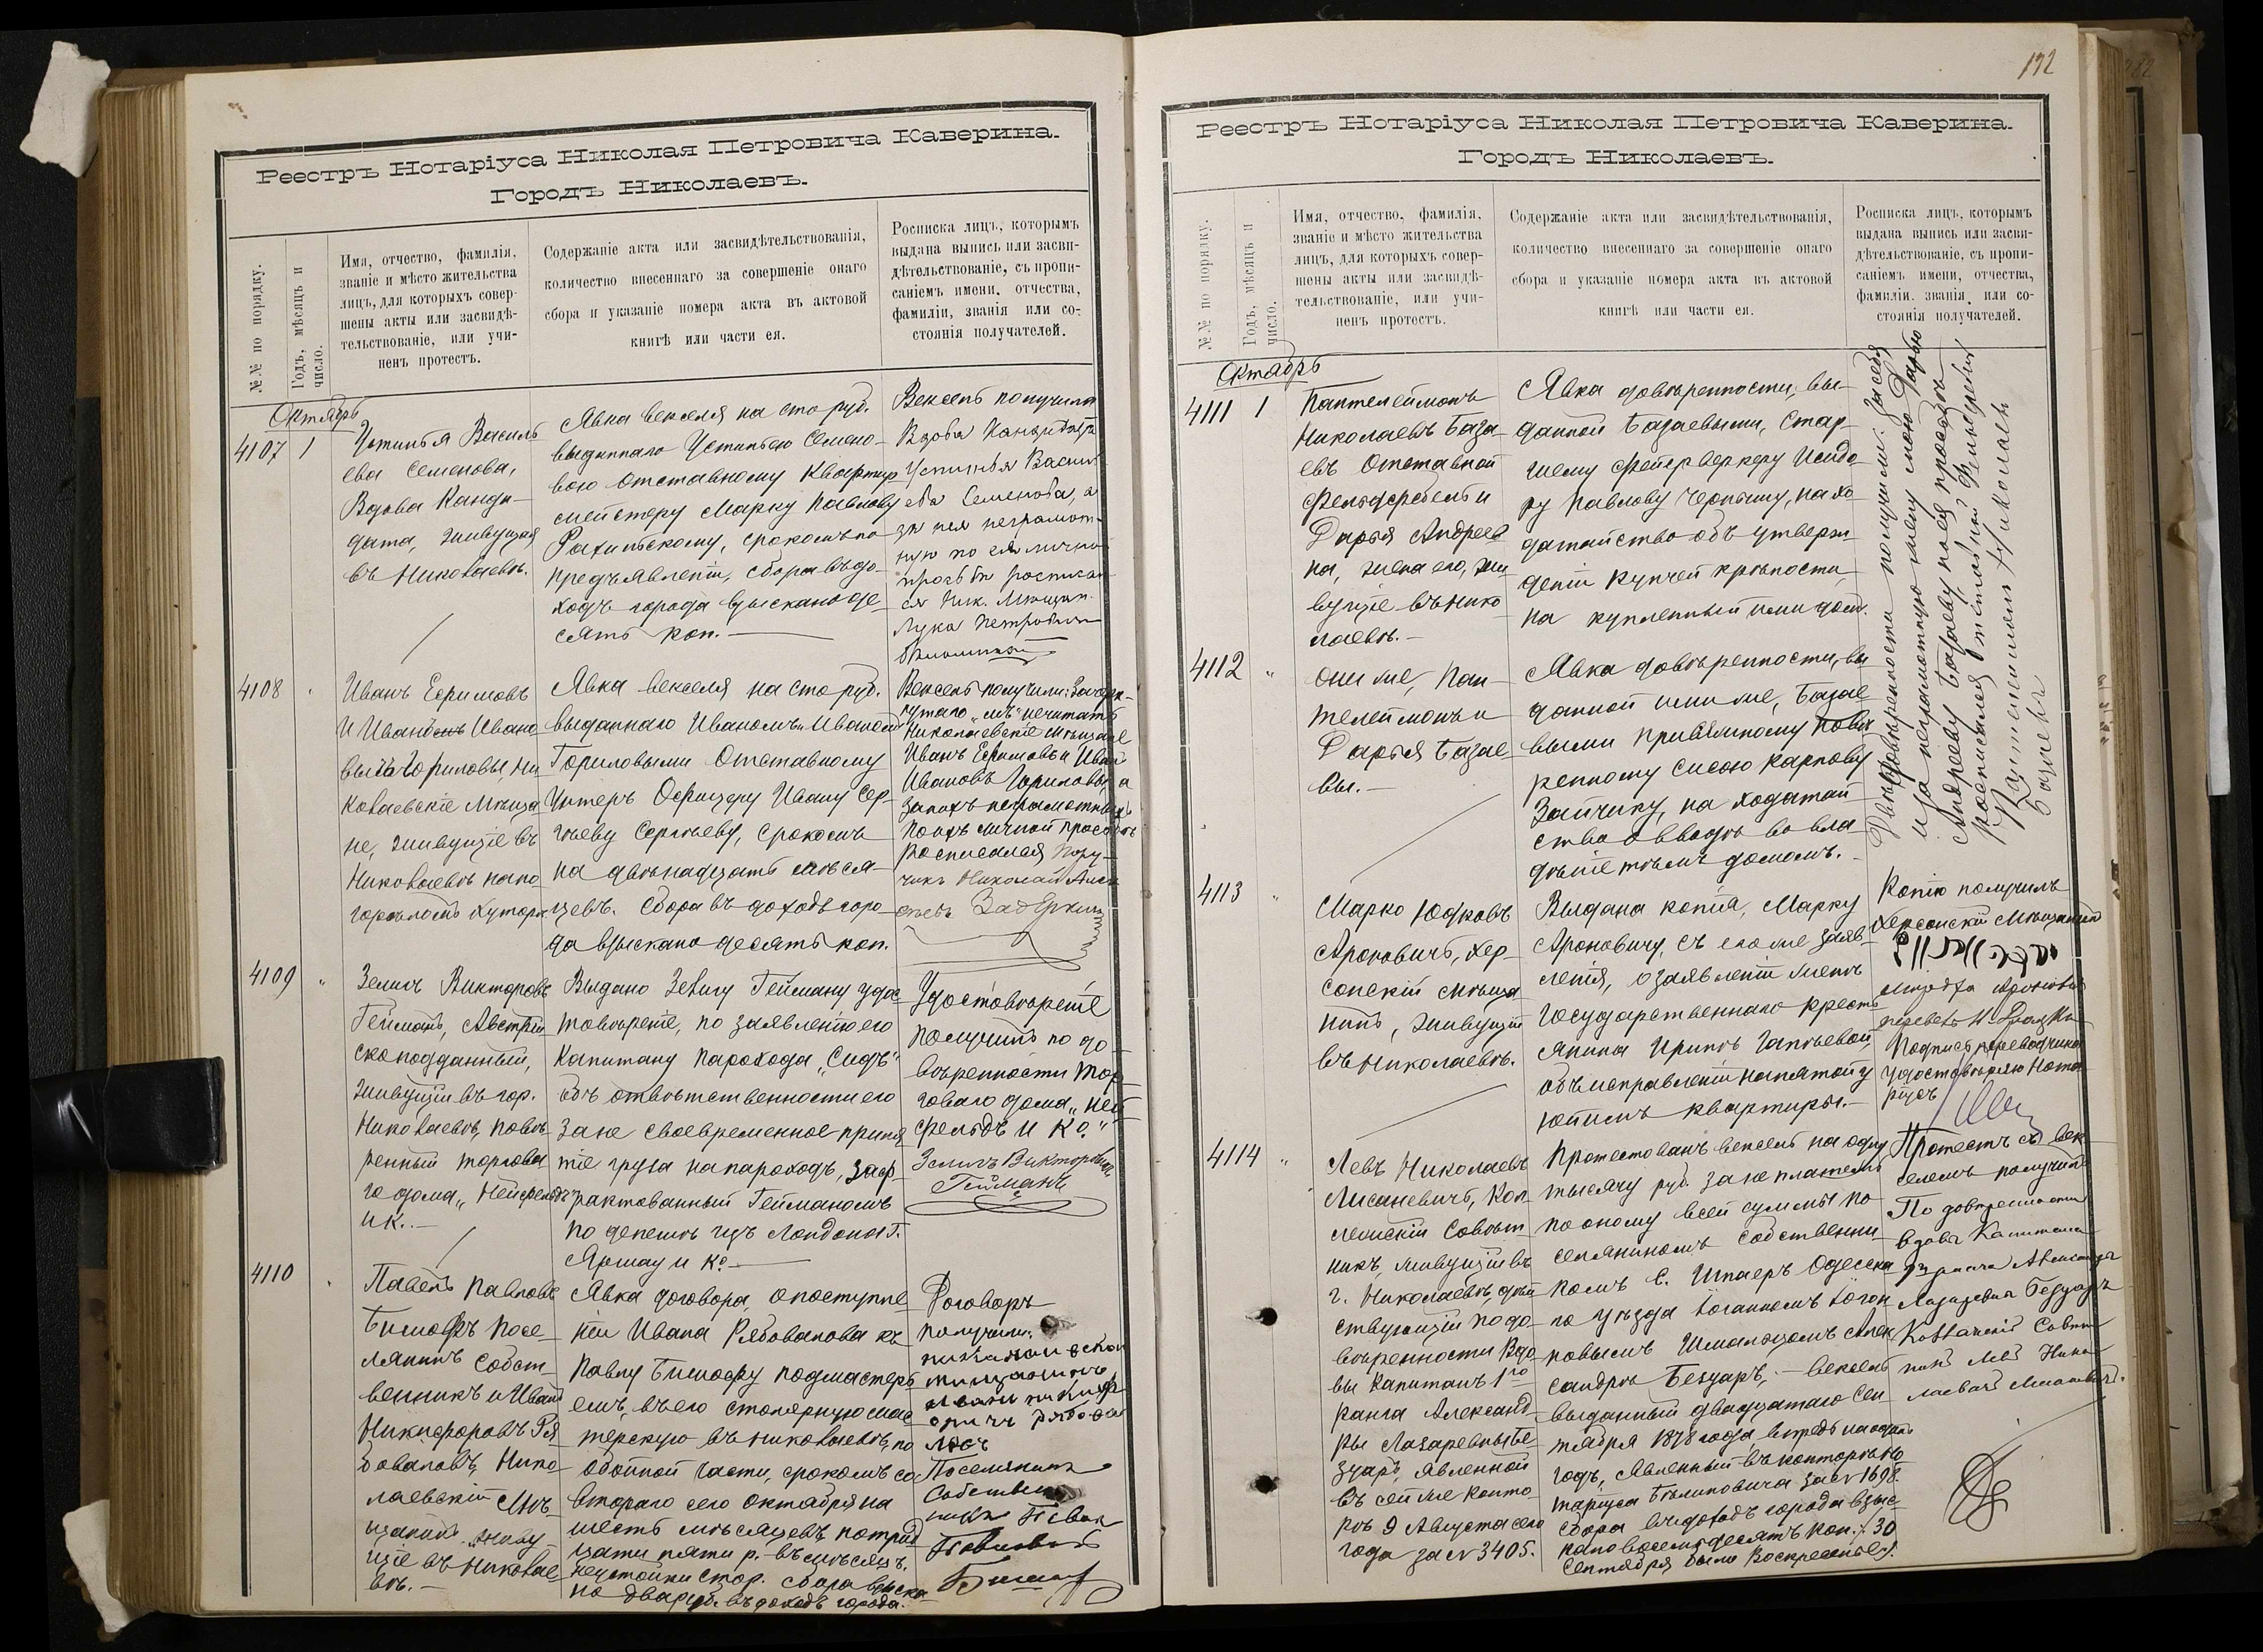 Реестръ Нотаріуса Николая Петровича Каверина.
Городъ Николаевъ.
№№ по порядку.
Годъ, мѣсяцъ и
число.
Имя, отчество, фамилія,
званіе и мѣсто жительства
лицъ, для которыхъ совер-
шены акты или засвидѣ-
тельствованіе, или учи-
ненъ протестъ.
Содержаніе акта или засвидѣтельствованія,
количество внесеннаго за совершеніе онаго
сбора и указаніе номера акта въ актовой
книгѣ или части ея.
Росписка лицъ, которымъ
выдана выпись или засви-
дѣтельствованіе, съ пропи-
саніемъ имени, отчества,
фамиліи, званія или со-
стоянія получателей.
Октябрь
4107 1
Устинья Василь
ева Семенова,
Вдова Канди-
дата, живущая
въ Николаевѣ.
Явка векселя на сто руб.
выданнаго Устиньею Семено-
вою отставному Квартир
мейстеру Марку Павлову
срокомъ по
предъявленіи, сбора въ до-
ходъ города взыскано де
сять коп.
Вексель получила
Вдова Кандидата
Устинья Василь
ева Семенова, а
за нея неграмот-
ную по ея личной
просьбѣ росписал
ся Ник. Мѣщан.
Лука Петровичъ
4108
Иванъ Ефимовъ
и Иванъ Ивано
вы Гориловы, Ни
колаевскіе Мѣща
не, живущіе въ
Николаевѣ на по
горѣломъ хуторѣ
Явка векселя на сто руб.
выданнаго Иваномъ и Иваномъ
Гориловыми Отставному
Унтеръ Офицеру Ивану Сер-
гѣеву Сергѣеву, срокомъ
на двѣнадцать мѣся-
цевъ. Сбора въ доходъ горо-
да взыскано десять коп.
Вексель получили: Зачерк-
нутаго „мъ" не читать
Николаевскіе мѣщане
Иванъ Ефимовъ и Иванъ
Ивановъ Гориловы, а
за нихъ неграмотныхъ
по ихъ личной просьбѣ
росписался Пору-
чикъ Николай Алек
4109
Зелигъ Викторовъ
Гейманъ, Австрій
скоподданный,
живущій въ гор.
Николаевѣ, повѣ
ренный торгова
го дома „Нейфельдъ
и К..-
Выдано Зелигу Гейману удос
товѣреніе, по заявленію его
Капитану парохода „Сидъ"
объ отвѣтственности его
за не своевременное приня
тіе груза на пароходъ, заф-
рахтованный Гейманомъ
по депешѣ изъ Лондона Г.
и Кº
Удостовѣреніе
получилъ по до
вѣренности тор
говаго дома „Ней
фельдъ и Кº."
Зелигъ Викторовичъ
Гейманъ
4110
Павелъ Павловъ
посе-
лянинъ собст
венникъ и Иванъ
Никифоровъ Ря
боваловъ, Нико
лаевскій мѣ-
щанинъ живу
щіе въ Николае
вѣ.-
Явка договора, о поступле
ніи Ивана Рябовалова къ
Павлу подмастерь
емъ, въ его столярную мас
терскую въ Николаевѣ, по
обойной части, срокомъ со
втораго сего Октября на
шесть мѣсяцевъ по трид
цати пяти р. въ мѣсяцъ.
Неустойки сто р. сбора взыска
но два руб. въ доходъ города.
Договоръ
получили.
Поселянинъ
Собствен
никъ
192
Реестръ Нотаріуса Николая Петровича Каверина.
Городъ Николаевъ.
№№ по порядку.
Годъ, мѣсяцъ и
число.
Имя, отчество, фамилія,
званіе и мѣсто жительства
лицъ, для которыхъ совер-
шены акты или засвидѣ-
тельствованіе, или учи-
ненъ протестъ.
Содержаніе акта или засвидѣтельствованія,
количество внесеннаго за совершеніе онаго
сбора и указаніе номера акта въ актовой
книгѣ или части ея.
Росписка лицъ, которымъ
выдана выпись или засви-
дѣтельствованіе, съ пропи-
саніемъ имени, отчества,
фамиліи, званія, или со-
стоянія получателей.
Октябрь
4111 1
Пантелеймонъ
Николаевъ База-
евъ Отставной
Фельдфебель и
Дарья Андреев
на, жена его, жи
вущіе въ Нико
лаевѣ.-
Явка довѣренности, вы-
данной Базаевыми, Стар-
шему Фейерверкеру Исидо
ру Павлову на хо
датайство объ утверж
деніи купчей крѣпости,
на купленный ими домъ.
Двѣ довѣренности получили: за себя
и за неграмотную жену мою Дарью
Андрееву Базаеву по ея просьбѣ
росписался отставной Фельдфебель
Пантелеймонъ Николаевъ
Базаевъ
4112
они же, Пан-
телеймонъ и
Дарья Базае
вы.-
Явка довѣренности, вы
данной ими же, Базае
выми присяжному повѣ
ренному Сисою Карпову
Зайчику, на ходатай
ство о вводѣ во вла
дѣніе тѣмъ домомъ.
4113
Марко Юдковъ
Ароновичъ, Хер-
сонскій мѣща
нинъ, живущій
въ Николаевѣ.
Выдана копія, Марку
Ароновичу, съ его же заяв-
ленія, о заявленіи женѣ
Государственнаго кресть
янина Иринѣ
объ исправленіи нанятой у
ней имъ квартиры.-
Копію получилъ
Херсонскій Мѣщанинъ
Подпись переводчика
удостовѣряю Нота
ріусъ
4114
Левъ Николаевъ
Лисаневичъ, Кол
лежскій Совѣт
никъ, живущій въ
г. Николаевѣ, дѣй
ствующій по до-
вѣренности Вдо
вы Капитанъ 1го
ранга Александ-
ры Лазаревны Бе-
зуаръ, явленной
въ сей же конто-
рѣ 9 Августа сего
года за № 3405.
Протестованъ вексель на одну
тысячу руб. за не платежъ
по оному всей суммы по
селяниномъ собственни
комъ с. Шпаеръ Одесска
го уѣзда Іоганномъ Іоган
новымъ Шмальцомъ Алек
сандрѣ Безуаръ, - вексель
выданный двадцатаго Сен
тября 1878 года впредь на одинъ
годъ, Явленный въ конторѣ Но
таріуса за № 1698.
сбора въ доходъ города взыс-
кано восемьдесятъ коп. /. 30
Сентября было Воскресенье/.
Протестъ съ век
селемъ получилъ
По довѣренности
вдовы Капитана
1 ранга Александры
Лазаревны Безуаръ
Коллежскій Совѣт
никъ Левъ Нико
лаевичъ Лисаневичъ.